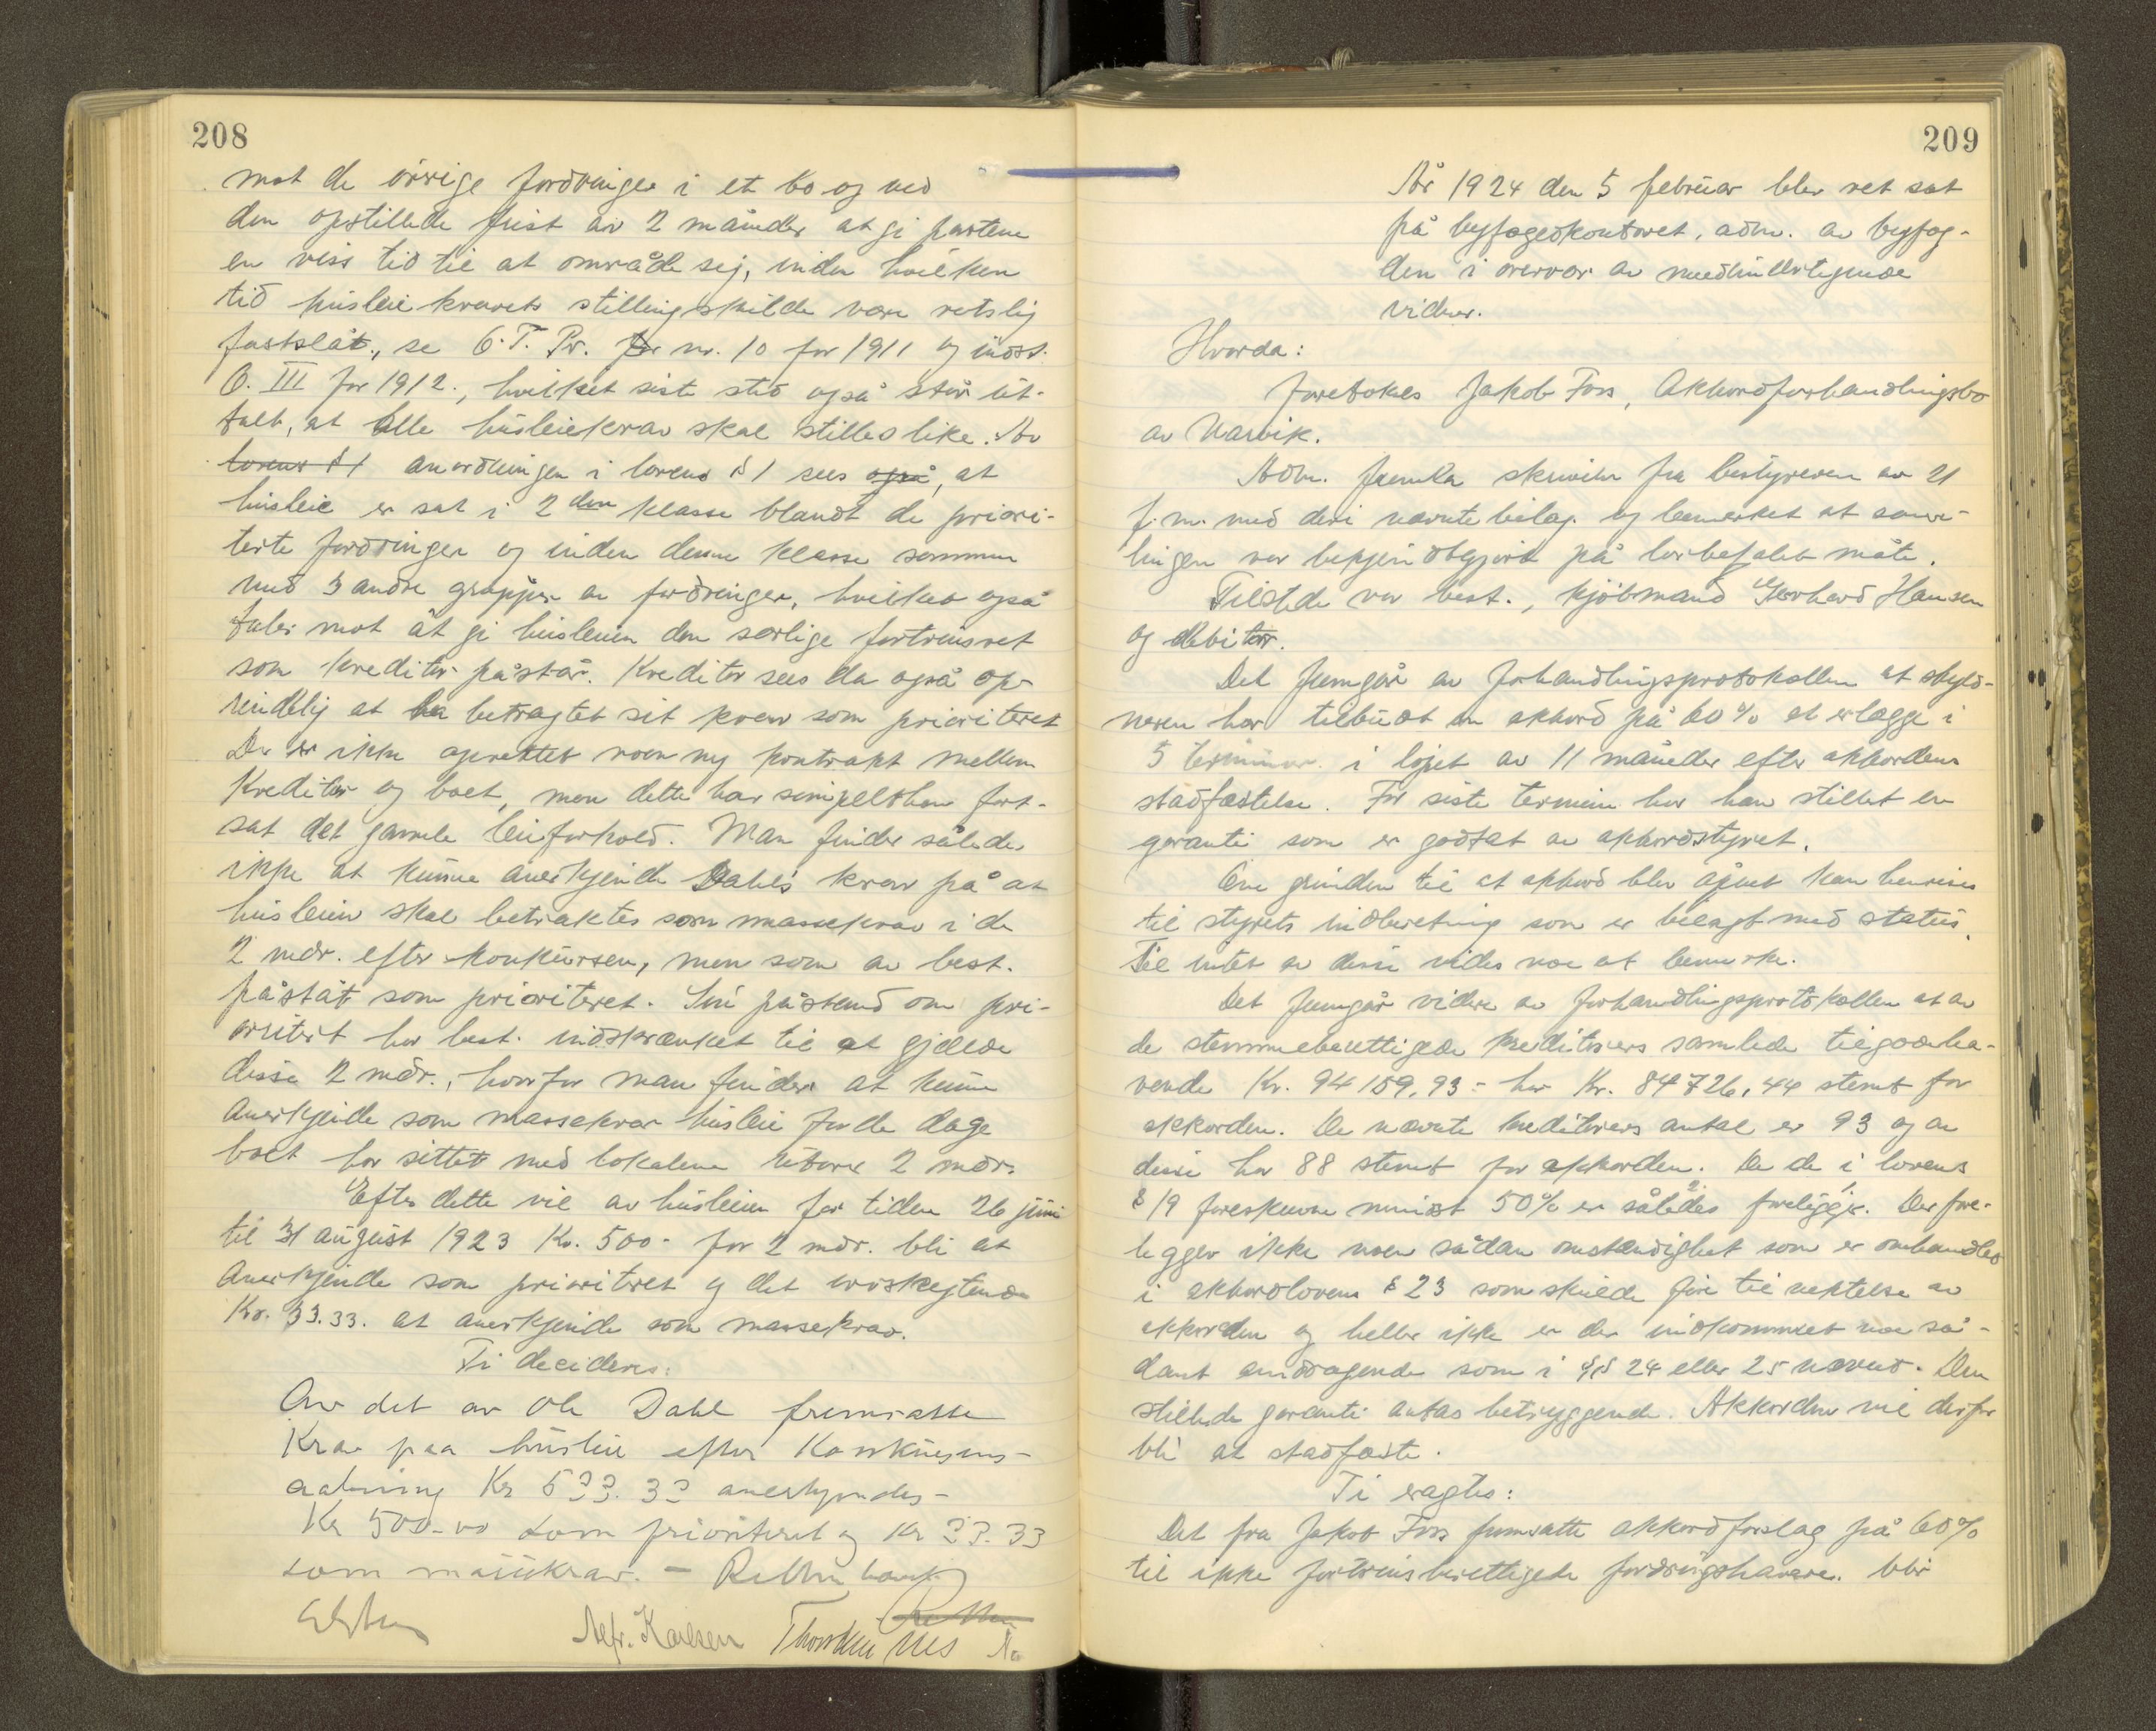 208
mot de örrige fordringer i et bo og ved
den opstillede frist av 2 måneder at gi partene
en viss tid til at område sig, inden hvilken
tid husleiekravets stilling skulde være retslig
fastslåt, se O.T. Pr. nr. 10 for 1911 og indst.
O. III for 1912., hvilket siste sted også står út-
talt, at alle húsleiekrav skal stilles like. Av
lovens § 1 anordningen i lovens § 1 sees også, at
húsleie er sat i 2den klasse blandt de priori-
terte fordringer og inden denne klasse sammen
med 3 andre grupper av fordringer, hvilket også
taler mot åt gi húsleien den særlige fortrinsret
som kreditor påstår. Kreditor sees da også op-
rindelig at ha betragtet sit krav som prioriteret
Der er ikke oprettet noen ny kontrakt mellem
Kreditor og boet, men dette har simpelthen fort-
sat det gamle leieforhold. Man finder således
ikke at kúnne anerkjende Dahls krav på at
húsleien skal betraktes som massekrav i de
2 mdr. efter konkúrsen, men som av best.
påståt som prioriteret. Sin påstand om pri-
oritet har best. indskrænket til at gjælde
disse 2 mdr., hvorfor man finder at kúnne
anerkjende som massekrav húsleie for de dage
boet har sittet med lokalene útover 2 mdr.
Efter dette vil av húsleien for tiden 26 júni
til 31 aúgúst 1923 Kr. 500.- for 2 mdr. bli at
anerkjende som prioriteret og det overskytende
Kr. 33.33. at anerkjende som massekrav.
Ti decideres:
Av det av Ole Dahl fremsatte
Krav paa húsleie efter Konkúrsens-
aabning Kr 533.33 anerkjendes-
Kr 500-00 som prioriteret og Kr 33.33
som massekrav. -
Alfr. Karlsen Thorstein Nes
209
År 1924 den 5 febrúar blev ret sat
på byfogedkontoret, adm. av byfog-
den i overvær av medúndertegnede
vidner.
Hvorda:
Foretokes Jakob Foss, Akkordforhandlingsbo
av Narvik.
Adm. fremla skrivelse fra bestyreren av 21
f.m. med deri nævnte bilag. og bemerket at sam-
lingen var bekjendtgjort på lovbefalet måte.
Tilstede var best., kjöbmand Gerhard Hansen
og debitor.
Det fremgår av forhandlingsprotokollen at skyld-
neren har tilbúdt en akkord på 60% at erlægge i
5 terminer i löpet av 11 måneder efter akkordens
stadfæstelse. For siste termin har han stillet en
garanti som er godtat av akkordstyret.
Om grúnden til at akkord blev åpnet kan henvises
til styrets indberetning som er bilagt med statús.
Til intet av disse vides noe at bemerke.
Det fremgår videre av forhandlingsprotokollen at av
de stemmeberettigede kreditorers samlede tilgodeha-
vende Kr. 94 159,93 - har Kr. 84726,44 stemt for
akkorden. De nævnte kreditorers antal er 93 og av
disse har 88 stemt for akkorden. De de i lovens
§ 19 foreskrevne mindst 50% er således foreligger. Der fore-
ligger ikke noen sådan omstændighet som er omhandlet
i akkordlovens § 23 som skúlde före til nektelse av
akkorden og heller ikke er der indkommet noe så-
dant andragende som i §§ 24 eller 25 nævnt. Den
stillede garanti antas betryggende. Akkorden vil derfor
bli at stadfæste.
Ti eragtes:
Det fra Jakob Foss fremsatte akkordforslag på 60%
til ikke fortrinsberettigede fordringshavere. blir